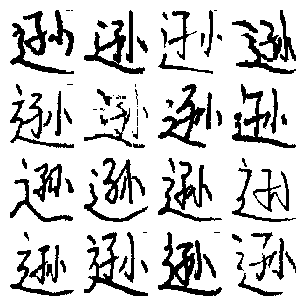 逊逊逊逊
逊逊逊逊
逊逊逊逊
逊逊逊逊